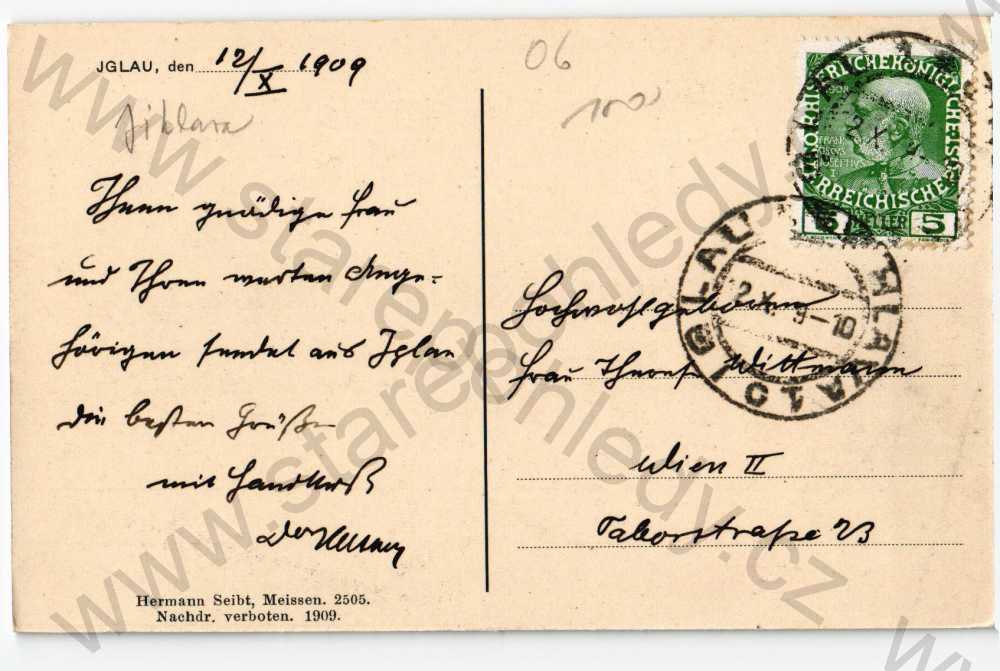 JGLAU, den 12/X 1909
06
100
Jihlava
Ihnen gnädige Frau
und Ihren werten Ange-
hörigen sendet aus Iglau
die besten Grüße
mit Handkuß
Hochwohlgeboren
Frau Therese Wittmann
Wien II
Taborstraße 23
Hermann Seibt, Meissen. 2505.
Nachdr. verboten. 1909.
KAISERLICHEKÖNIGLICHE
ÖSTERREICHISCHE
5 HELLER 5
IGLAU
JIHLAVA 1
12 X 9-10
www.starepohledy.cz
www.starepohledy.cz